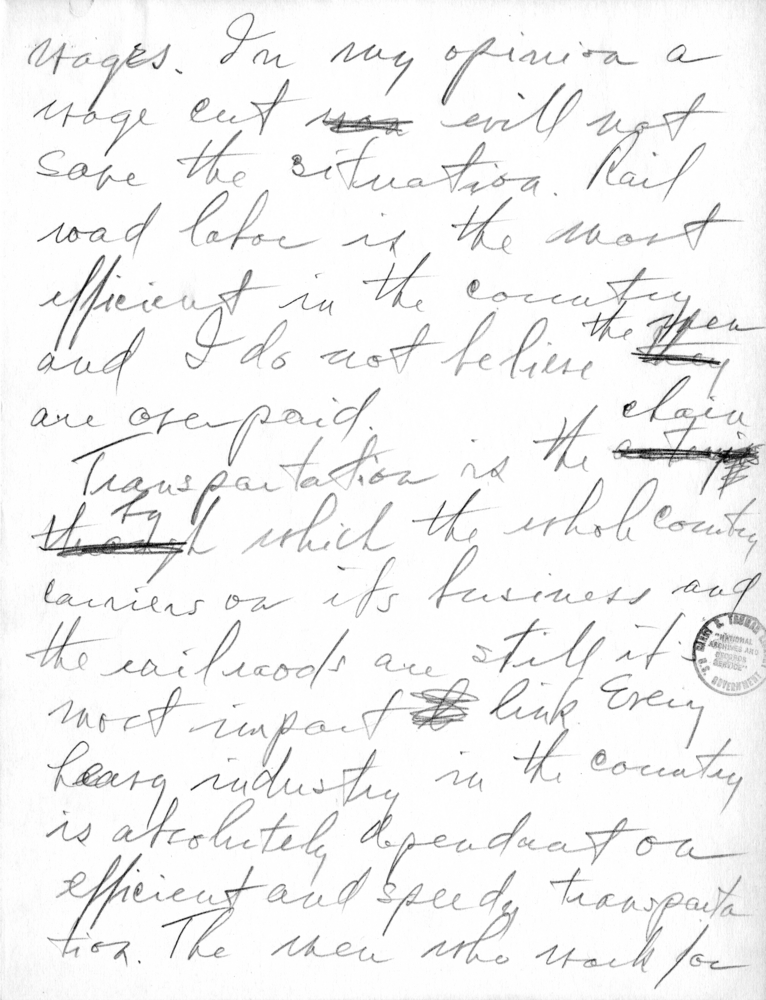 wages. In my opinion a
wage cut will not
save the situation. Rail
road labor is the most
efficient in the country
and I do not believe the men
they
are overpaid.
chain
Transportation is the
by
through which the whole country
carriers on its business and
the railroads are still it's
most import link. Every
heavy industry in the country
is absolutely dependent on
efficient and speedy transporta
tion. The men who work for
HARRY S. TRUMAN
"NATIONAL
ARCHIVES AND
RECORDS
SERVICE"
U.S. GOVERNMENT